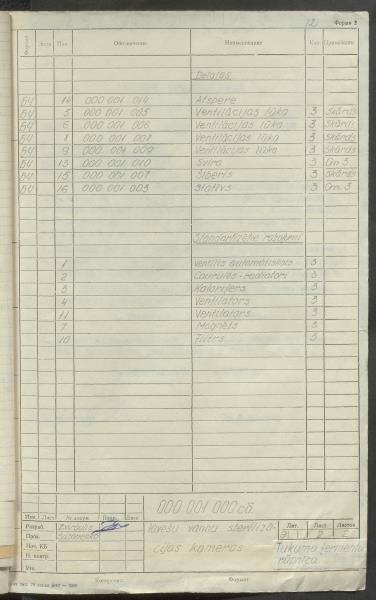 12
Форма 2
Формат Зона Поз. Обозначение Наименование Кол. Примечание
Detaļas
БЧ 14 000 001 014 Atspere
БЧ 5 000 001 005 Ventilācijas lūka 3 Skārds
БЧ 6 000 001 006 Ventilācijas lūka 3 Skārds
БЧ 8 Ventilācijas lūka 3 Skārds
БЧ 9 000 001 009 Ventilācijas lūka 3 Skārds
БЧ 13 000 001 010 Svira 3 Cm 3
БЧ 15 000 001 007 Šīberis 3 Skārds
БЧ 16 000 001 003 Statīvs 3 Cm. 3
Standartizētie ražojumi
1 Ventilis automātiskais 3
2 Caurules-radiatori 3
3 Kalorifers 3
4 Ventilators 3
11 Ventilators 3
7 Magnēts 3
10 Filtrs 3
000 001 000 сб.
Изм. Лист № докум. Подп. Дата
Разраб.
Пров.
Нач. КБ
Н. контр.
Утв.
Kivešu vannu sterilizā-
cijas kameras
Лит. Лист Листов
2
Tukuma
rūpnīca
Копировал Формат